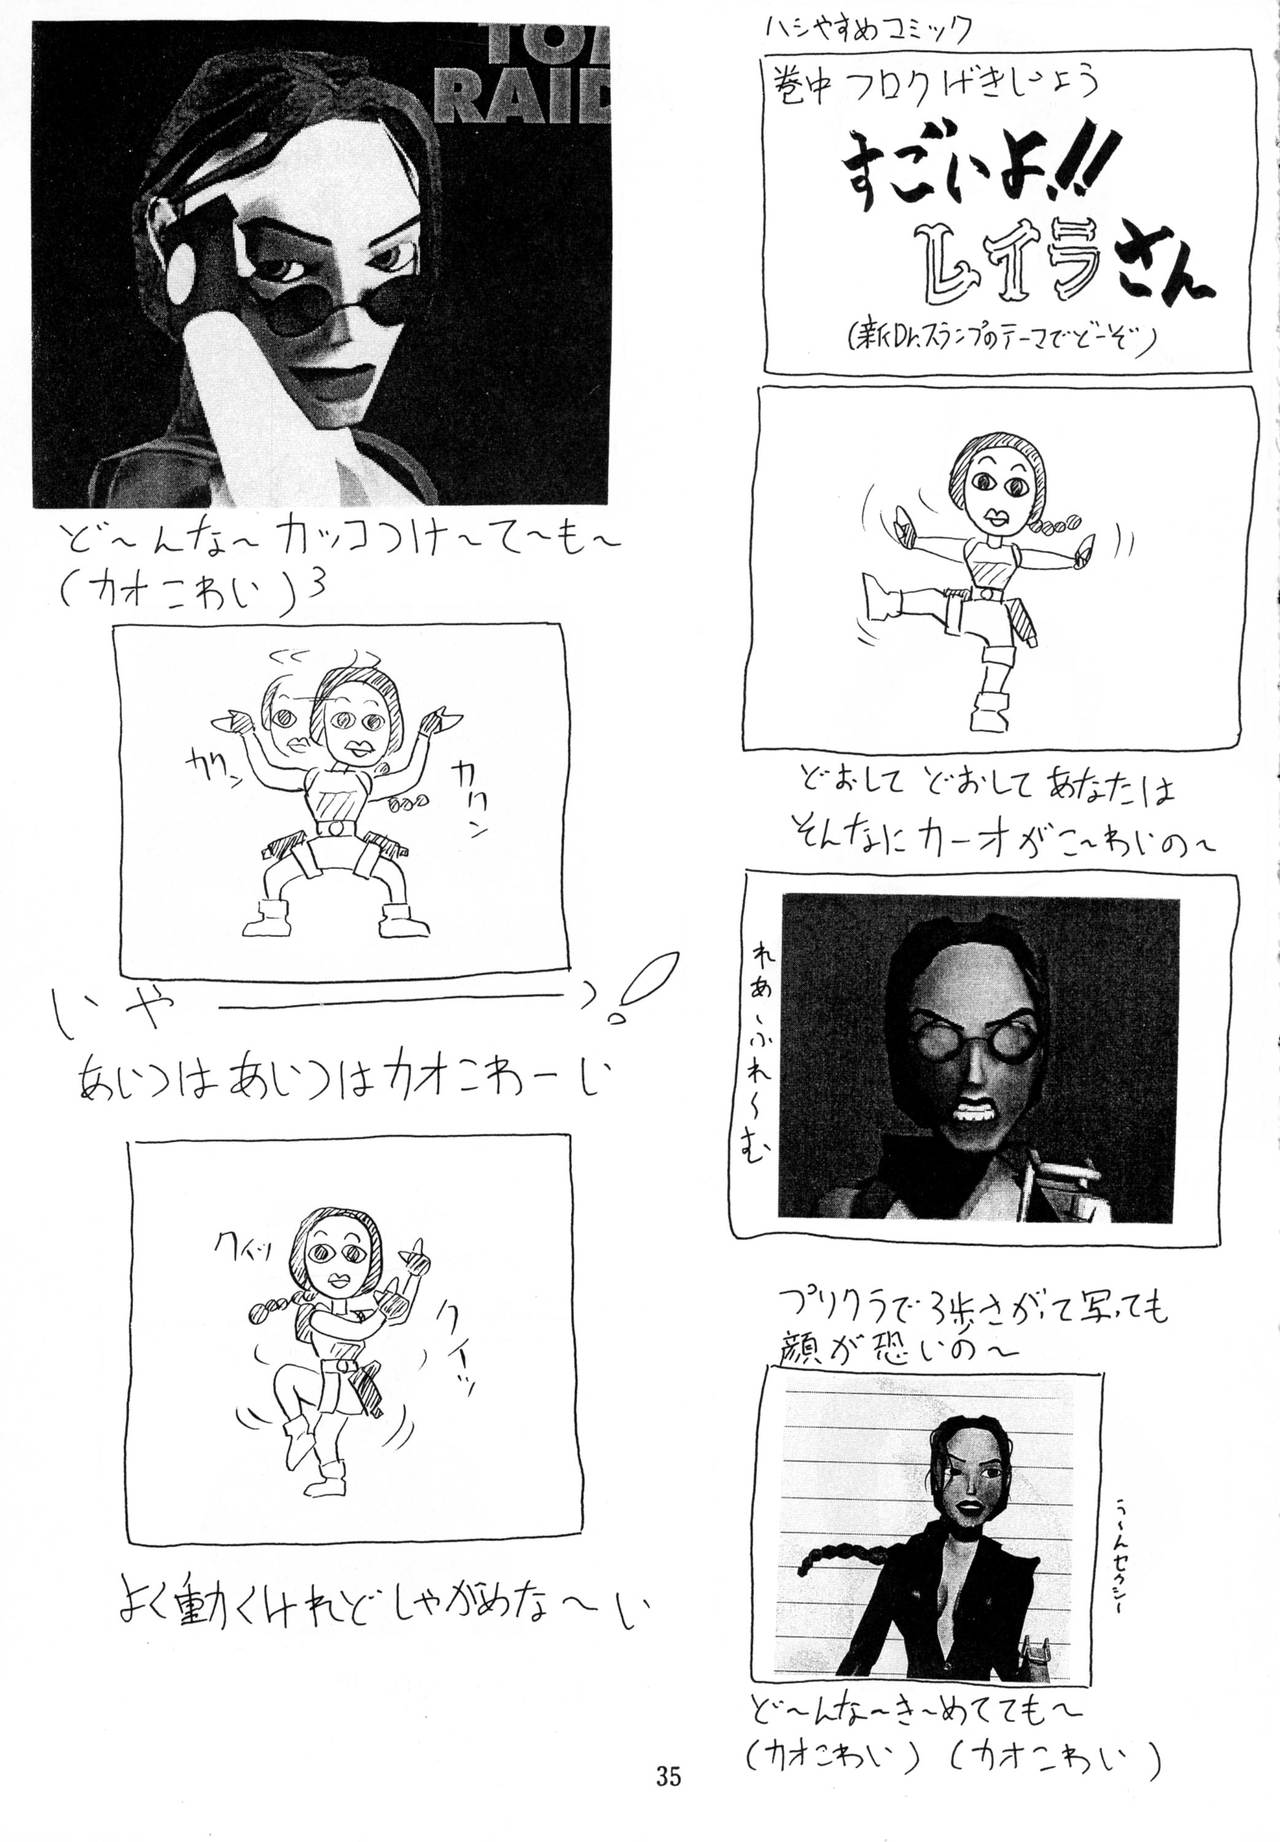 ハシやすめコミック
巻中フロクげきじょう
すごいよ!!
レイラさん
(新Dr.スランプのテーマでどーぞ)
どおして どおして あなたは
そんなに カーオがこ〜わいの〜
れあ〜ふれ〜む
プリクラで3歩さがって写っても
顔が恐いの〜
う〜んセクシー
ど〜んな〜き〜めてても〜
(カオこわい) (カオこわい)
TOM
RAID
ど〜んな〜カッコつけ〜て〜も〜
(カオこわい)3
カクン
カクン
いや――――っ!
あいつはあいつはカオこわーい
クイッ
クイーッ
よく動くけれどしゃがめな〜い
35